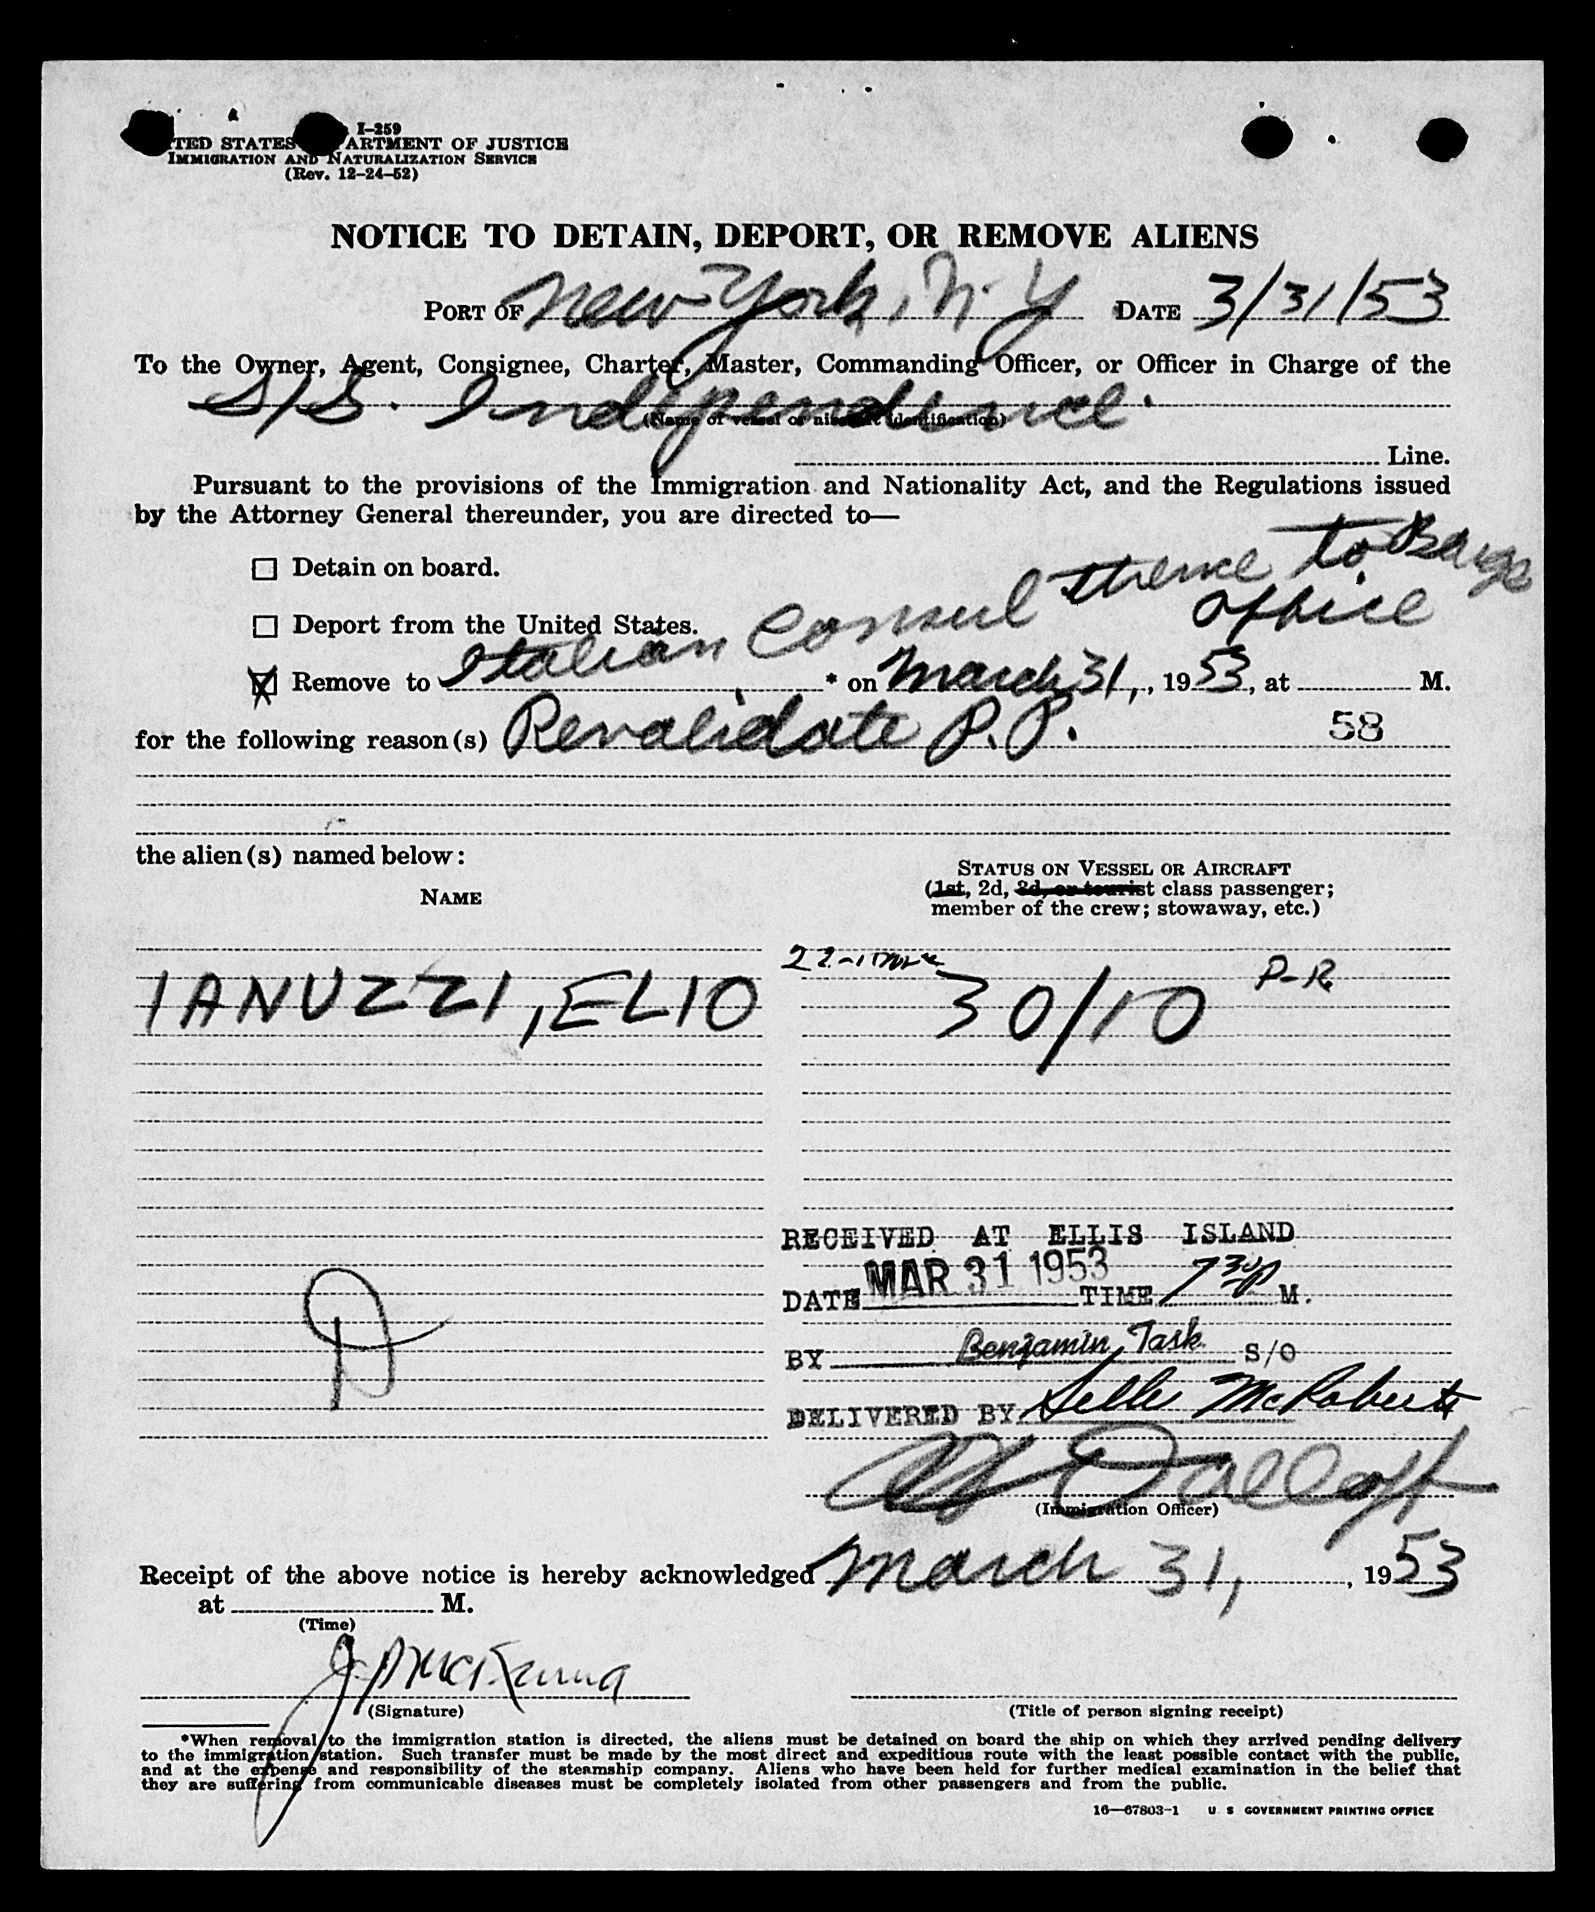 I-259
TED STATES ARTMENT OF JUSTICE
IMMIGRATION AND NATURALIZATION SERVICE
(Rev. 12-24-52)
NOTICE TO DETAIN, DEPORT, OR REMOVE ALIENS
PORT OF New York, N.Y DATE 3/31/53
To the Owner, Agent, Consignee, Charter, Master, Commanding Officer, or Officer in Charge of the
S/S. Independence.
(Name of vessel or aircraft identification)
Line.
Pursuant to the provisions of the Immigration and Nationality Act, and the Regulations issued
by the Attorney General thereunder, you are directed to—
☐ Detain on board.
thence to Barge
Office
☐ Deport from the United States.
☒ Remove to Italian Consul * on March 31, , 1953, at M.
for the following reason(s) Revalidate P.P. 58
the alien(s) named below:
STATUS ON VESSEL OR AIRCRAFT
NAME
(1st, 2d, 3d, or tourist class passenger;
member of the crew; stowaway, etc.)
IANUZZI, ELIO 30/10 P-R
RECEIVED AT ELLIS ISLAND
DATE MAR 31 1953 TIME 7 30 P M.
BY Benjamin Task S/O
DELIVERED BY McRoberts
(Immigration Officer)
Receipt of the above notice is hereby acknowledged March 31, , 1953
at M.
(Time)
(Signature)
(Title of person signing receipt)
*When removal to the immigration station is directed, the aliens must be detained on board the ship on which they arrived pending delivery
to the immigration station. Such transfer must be made by the most direct and expeditious route with the least possible contact with the public,
and at the expense and responsibility of the steamship company. Aliens who have been held for further medical examination in the belief that
they are suffering from communicable diseases must be completely isolated from other passengers and from the public.
16—67803-1 U S GOVERNMENT PRINTING OFFICE